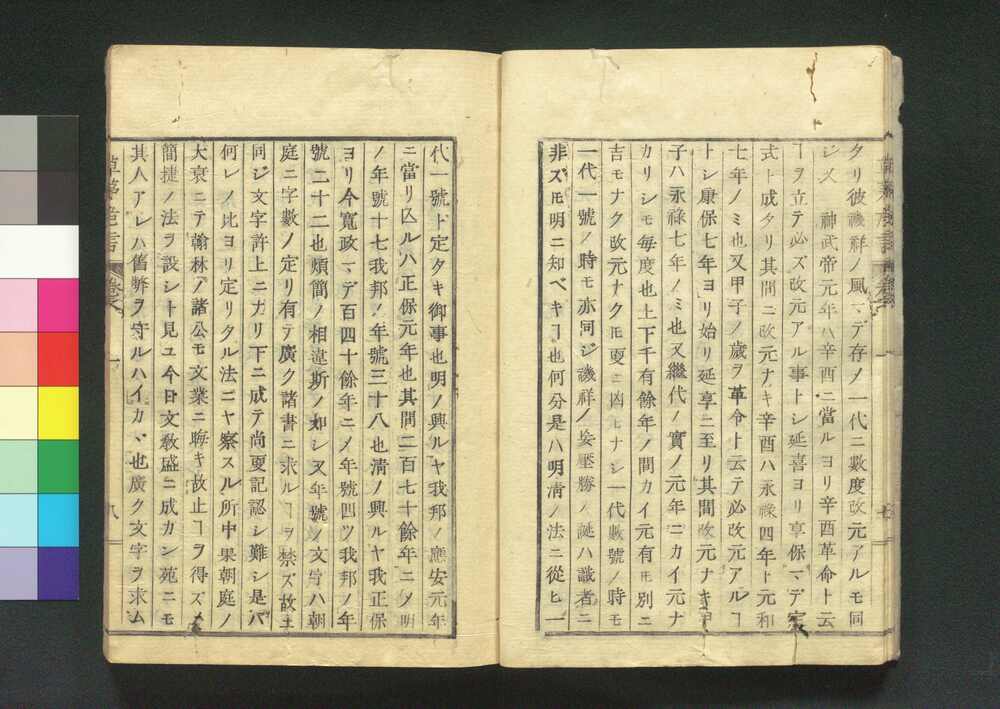 タリ彼禨祥ノ風マデ存メ一代ニ數度改元アルモ同
ジ乄 神武帝元年ハ辛酉ニ當ルヨリ辛酉革命ト云
ヿヲ立テ必ズ改元アル事トシ延喜ヨリ享保マデ定
式ト成タリ其間ニ改元ナキ辛酉ハ永祿四年ト元和
七年ノミ也又甲子ノ歳ヲ革令ト云テ必改元アルヿ
トシ康保七年ヨリ始リ延享ニ至リ其間改元ナキ甲
子ハ永祿七年ノミ也又繼代ノ實ノ元年ニカイ元ナ
カリシモ毎度也上下千有餘年ノ間カイ元有ㇺ別ニ
吉モナク改元ナクㇺ更ニ凶モナシ一代數號ノ時モ
一代一號ノ時モ亦同ジ禨祥ノ妄壓勝ノ誕ハ識者ニ
非ズㇺ明ニ知ベキヿ也何分是ハ明清ノ法ニ從ヒ一
代一號ト定タキ御事也明ノ興ルヤ我邦ノ應安元年
ニ當リ亾ルハ正保元年也其間二百七十餘年ニ乄明
ノ年號十七我邦ノ年號三十八也清ノ興ルヤ我正保
ヨリ今寬政マデ百四十餘年ニ乄年號四ツ我邦ノ年
號二十二也煩簡ノ相違斯ノ如シ又年號ノ文字ハ朝
庭ニ字數ノ定リ有テ廣ク諸書ニ求ルヿヲ禁ズ故ニ
同ジ文字許上ニカリ下ニ成テ尚更記認シ難シ是ハ
何レノ比ヨリ定リタル法ニヤ察スル所中果朝庭ノ
大衰ニテ翰林ノ諸公モ文業ニ晦キ故止ヿヲ得ズ乄
簡捷ノ法ヲ設シト見ユ今日文敎盛ニ成カン苑ニモ
其人アレハ舊弊ヲ守ルハイカヾ也廣ク文字ヲ求ム